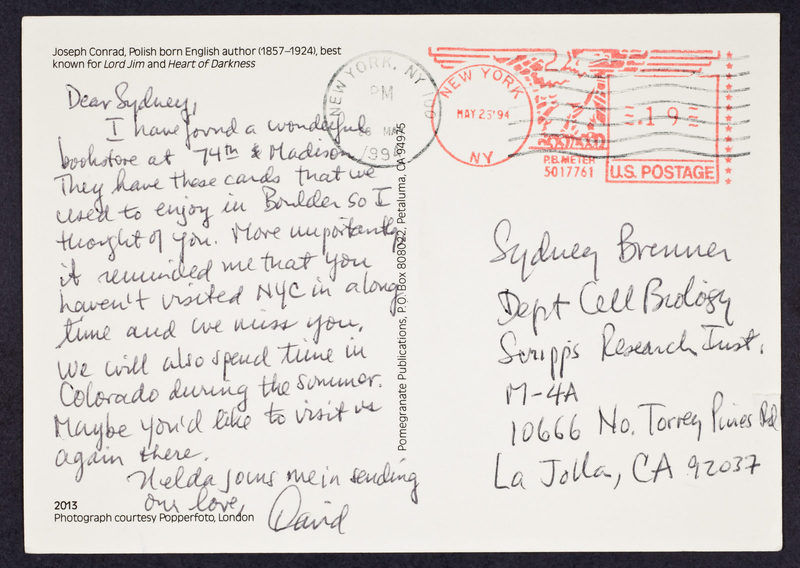 Joseph Conrad, Polish born English author (1857–1924), best
known for Lord Jim and Heart of Darkness
Dear Sydney,
I have found a wonderful
bookstore at 74th & Madison
They have these cards that we
used to enjoy in Boulder so I
thought of you. More importantly,
it reminded me that you
haven't visited NYC in along
time and we miss you.
We will also spend time in
Colorado during the summer.
Maybe you'd like to visit us
again there.
Helda joins me in sending
our love,
David
2013
Photograph courtesy Popperfoto, London
Pomegranate Publications, P.O. Box 808022, Petaluma, CA 94975
NEW YORK, NY 100
PM
MAY
199
NEW YORK
MAY 25'94
NY
P.B. METER
5017761
.19
U.S. POSTAGE
Sydney Brenner
Dept Cell Biology
Scripps Research Inst.
M-4A
10666 No. Torrey Pines Rd
La Jolla, CA 92037